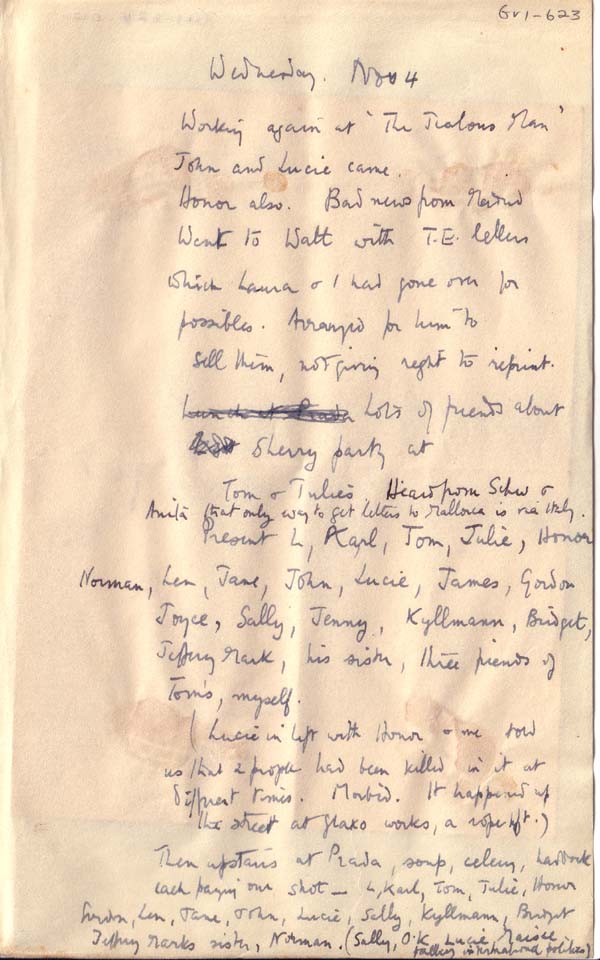 GV1-623
Wednesday. Nov 4
Working again at 'The Jealous Man'
John and Lucie came.
Honor also. Bad news from Madrid
Went to Watt with T.E. letters
which Laura & I had gone over for
possibles. Arranged for him to
sell them, not giving right to reprint.
Lunch at Prada Lots of friends about
Sherry party at
Tom & Julie's Heard from Schw &
Anita that only way to get letters to Mallorca is via Italy.
Present L, Karl, Tom, Julie, Honor
Norman, Len, Jane, John, Lucie, James, Gordon
Joyce, Sally, Jenny, Kyllmann, Bridget,
Jeffrey Mark, his sister, three friends of
Tom's, myself.
(Lucie in lift with Honor & me told
us that 2 people had been killed in it at
different times. Morbid. It happened up
the street at Glaxo works, a rope lift.)
Then upstairs at Prada, soup, celery, haddock
each paying our shot — L, Karl, Tom, Julie, Honor
Gordon, Len, Jane, John, Lucie, Sally, Kyllmann, Bridget
Jeffrey Mark's sister, Norman. (Sally, O.K, Lucie, Maisie
talking international politics)